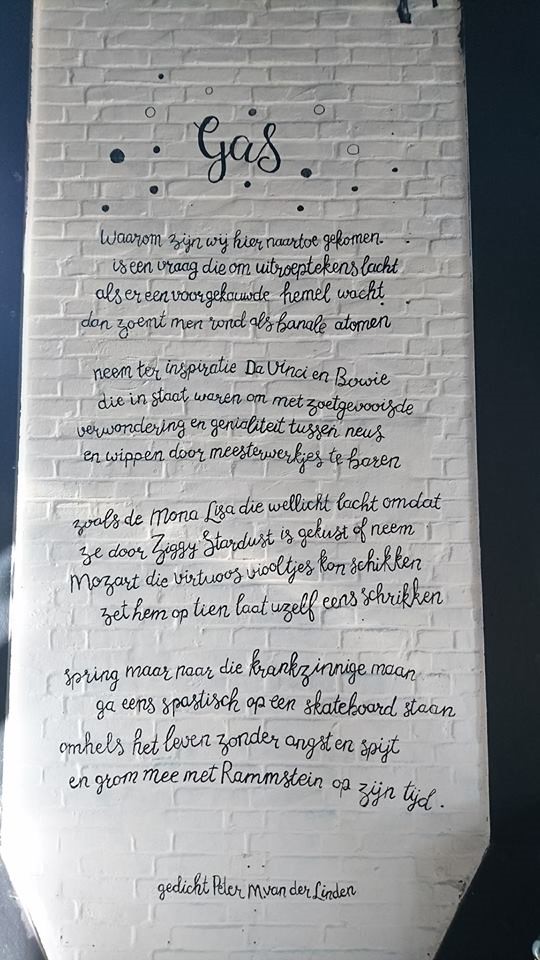 Gas
Waarom zijn wij hier naartoe gekomen.
is een vraag die om uitroeptekens lacht
als er een voorgekauwde hemel wacht
dan zoemt men rond als banale atomen
neem ter inspiratie Da Vinci en Bowie
die in staat waren om met zoetgevooisde
verwondering en genialiteit tussen neus
en wippen door meesterwerkjes te baren
zoals de Mona Lisa die wellicht lacht omdat
ze door Ziggy Stardust is gekust of neem
Mozart die virtuoos viooltjes kon schikken
zet hem op tien laat uzelf eens schrikken
spring maar naar die krankzinnige maan
ga eens spastisch op een skateboard staan
omhels het leven zonder angst en spijt
en grom mee met Rammstein op zijn tijd.
gedicht Peter M. van der Linden